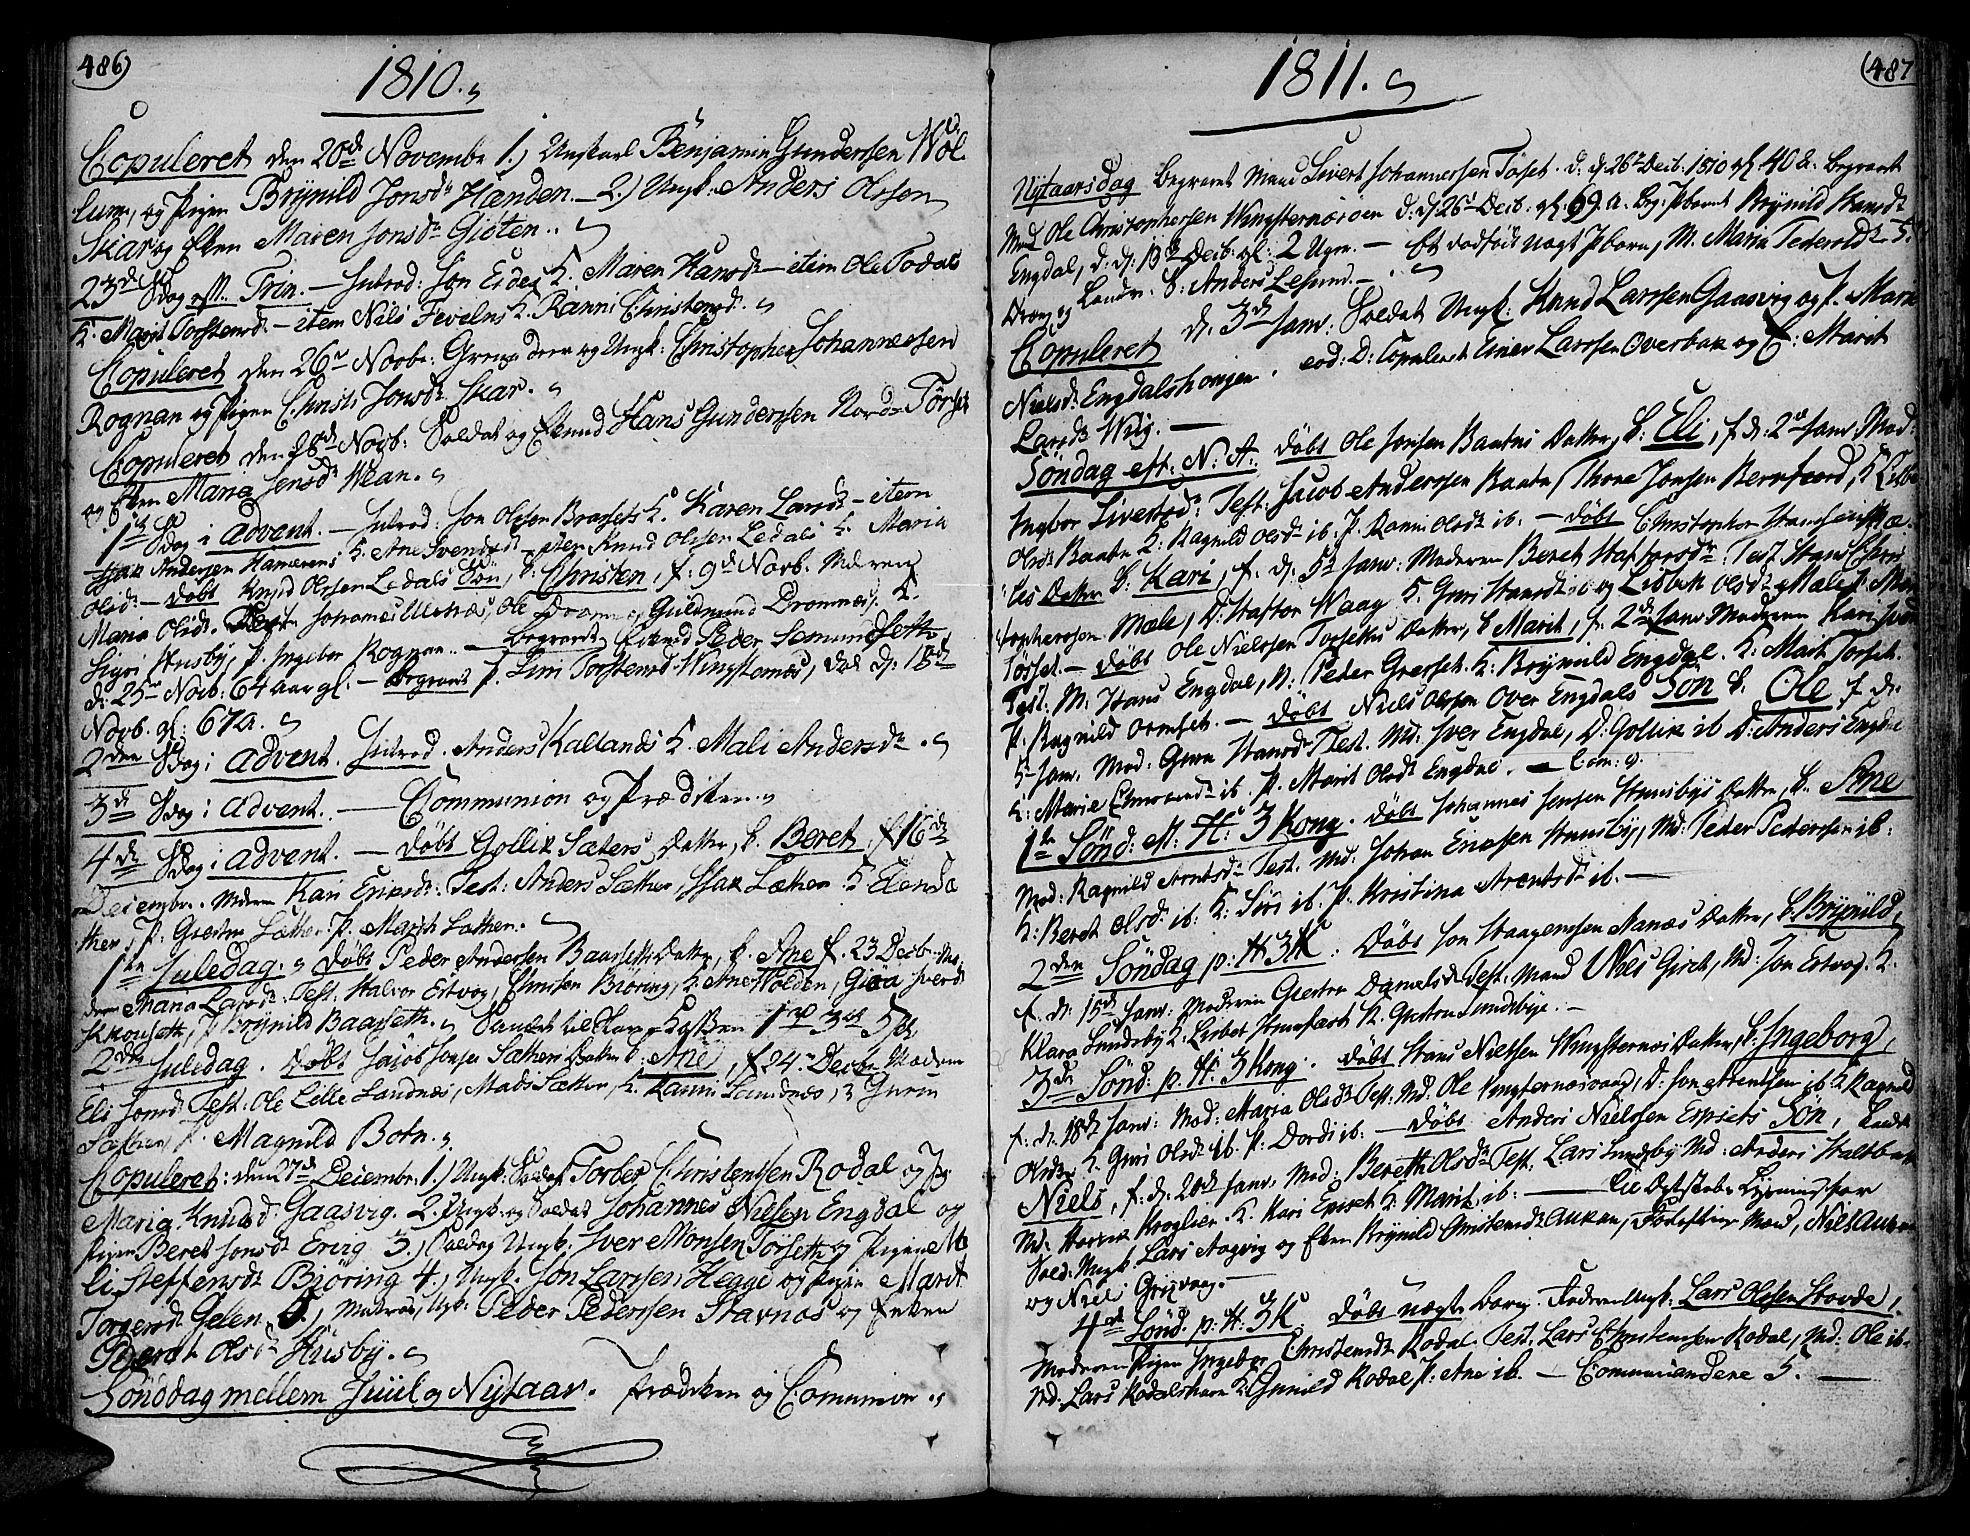 486)
1810.
Copuleret den 20de Novembr 1.) Ungkarl Benjamin Gunderssen Wol
lum, og Pigen Brynild Jonsdr Hænden. — 2.) Ungk: Anders Olssen
Skar og Enken Maren Jonsdr Giøten.
23de Sdag eft. Trin. — Introd: Jon Eides K. Maren Hansdr — item Ole Todals
K. Marit Torstensdr. — item Nils Fevelns K. Ranni Christensdr.
Copuleret den 26de Novbr: og Ungk: Christopher Johannessen
Rognan og Pigen Jonsdr Skar.
Copuleret den 28de Novb: Soldat og Hans Gunderssen Nordr Tørset
og Enken Maria Jensdr
1ste Sdag i Advent. — Introd: Jon Olssen Brøsets K. Karen Larsdr — item
Isak Anderssen Hamerens K. Ane Svendsdr — item Knud Olssen Ledals K. Maria
Olsdr. — Døbt Knud Olssen Ledals Søn, b. Christen, f. 9de Novb. Moderen
Maria Olsdr. Johannes Ole Guldmund Drommes. K.
Sigri Husby, P. Ingebor Rognan. — Begravet Peder Semundseth,
d: 25de Novb: 64 aar gl: — Begravet P. Siri Torstensd Wingsternes, død d: 18de
Novb. gl: 67 a.
2den Sdag i Advent. Introd. Anders Kallands K. Mali Andersdr.
3de Sdag i Advent. — Communion og Prædiken.
4de Sdag i Advent. — Døbt Gollik Sæters Datter, b. Beret, f. 16de
Decembr. Moderen Kari Ericksdr: Test: Anders Sæther, Isak Sæther K. Elen Sæ
ther, P. Giertru Sæther, P. Marit Sæther.
1ste Juledag. Døbt Peder Anderssen Baarseths Datter, b. Ane f. 23 Decbr. Mo
deren Maria Larsdr. Test: Halvor Eitvog, Christen Biøring, K. Ane Wolden, Iversdr
P. Brynild Baarseth.
2den Juledag. Døbt Jacob Jonsen Sætheri Datter b. Ane, f. 24de Decbr. Moderen
Eli Jonsdr Test: Ole Lille Sandnes, Mads Sæther, K. Ranni Sandnes, K Guren
Sæther, P. Magnild Botn.
Copuleret: den 27de Decembr: 1.) Ungk: Soldat Torber Christenssen Rodal og P
Maria Knudsd. Gaasvig. 2. Ungk: og Soldat Johannes Nielsen Engdal og
Pigen Beret Jonsdr Ervig 3.) Soldat Ungk: Iver Monsen Tørseth og Pigen M
li Steffensdr Biøring 4.) Ungk. Jon Larssen Hegge og Pigen Marit
Torgersdr Gelen. 5.) Matros, Ugk: Peder Pederssen Stavnæs og Enken
Beret Olsdr Husby.
Sønddag mellem Juul og Nytaar. Prædiken og Communion.
(487
1811.
Nytaarsdag Begravet Mand Sivert Johannessen Tørset. d. d. 26de Decb: 1810 gl. 40 a. Begravet
Mad Ole Christophersen d: d. 26de Decb. gl: 69 a. Beg: Pbarnet Brynild Hansdr
Engdal, d: d: 13de Decb: gl: 2 Uger. — Et dødfødt uegt Pbarn, M. Maria
Dreng og Landv. S: Anders Lesund. —
Copuleret d. 3de Janv: Soldat Ungk: Knud Larssen Gaasvig og P. Marit
Nielsdr. Engdalshougen. eod: D: Copuleret Einar Larssen Overbak og E: Marit
Larsdr Wiig. —
Søndag eft: N: A: Døbt Ole Jonsen Baatns Datter, b: Eli, f. d: 2de Janv: Mod:
Ingebor Sivertsdr: Test: Jacob Anderssen Baatn, Thore Jonsen Bernfiord, K
Olsdr Baatn K: Ragnild Olsdr ib. P. Ranni Olsdr ib. — Døbt Christopher Mæ
les Datter b. Kari, f. d: 5te Janv: Moderen Beret Haftorsdr. Test Hans Chris
tophersen Mæle, D: Haftor Waag K. Guri Hansdr ib og Lisbet Olsdr Mæle P. Mar
Tørset. — Døbt Ole Nielssen Tørsethus Datter, b Marit, f. 2de Janv Moderen Kari Iversdr
Test: M. Hans Engdal, N: Peder Grøset. K: Brynild Engdal. K. Marit Tørset.
P. Ragnild Ormset. — Døbt Niels Olssen Over Engdals Søn b. Ole f. d.
5te Janv. Mod: Guru Hansdr Test. Md: Iver Engdal, D: Gollik ib D: Anders Engdal
K: Marie ib. P. Marit Olsdr Engdal. — Com: 9.
1ste Sønd: M: H: 3 Kong. Døbt Johannes Jensen Husbys Datter, b. Ane
Mod: Ragnild Arentsdr Test. Md: Johan Ericksen Husby, Md: Peder Pederssen ib:
K: Beret Olsdr ib: K: Siri ib. P. Kristina Arentsdr ib. —
2den Søndag p: H 3K. Døbt Jon Haagenssen Nanæs Datter, b. Brynild,
f. d. 15de Janv: Moderen Giertru Danielsdr Test: Mand Niels Gireh, Md: Jon Eitvog. K.
Klara Sundsby K. Lisbet P. Giertru Sundsbye. —
3de Sønd: p. H: 3 Kong. Døbt Hans Nielsen Wingsternes Datter, b. Ingeborg,
f. d. 18de Janv: Mod: Maria Olsdr Test: Md. Ole D: Jon Arentsen ib K Ragnild
K. Guri Olsdr ib. P. Dordi ib: — Døbt Anders Nielssen Erpsets Søn, kaldt
Niels, f. d. 20de Janv. Mod: Bereth Olsdr Test, Lars Sundsby Md: Anders Haltbak
Md: Kroglien. K. Kari Erpset K. Marit ib: — Til Ægteskabs Lysning har
Sold: Ungk Lars Aagvig og Enken Brynild Christensdr Aukan, Forlover Mand, Niels Aukan
og Niels Grysvaag. —
4de Sønd. p: H: 3K. Døbt uægte barn. Faderen Ungk: Lars Olssen Stovde,
Moderen Pigen Ingebor Christensdr Rodal. Test: Lars Christenssen Rodal, Md: Ole ib.
Md: Lars Rodalshavn K: Gunild Rodal P: Ane ib. — Communicandene 5. —